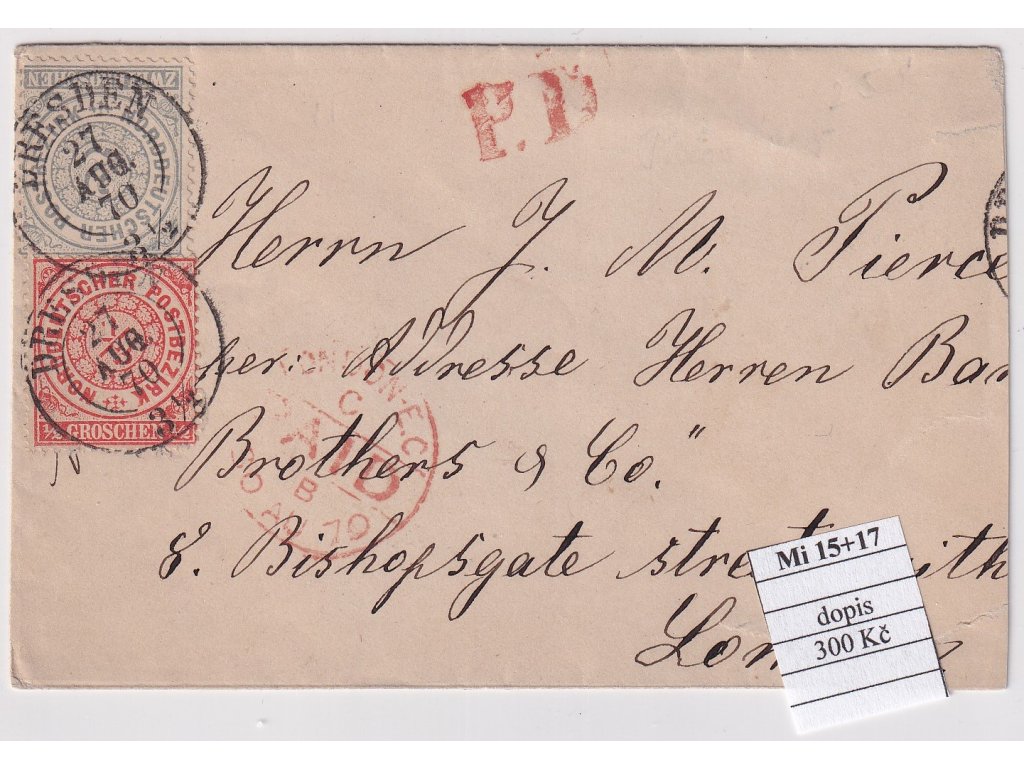 P.D
DRESDEN
27
AUG.
70
3½
NORDDEUTSCHER POSTBEZIRK
DRESDEN
27
AUG.
70
3½
NORDDEUTSCHER POSTBEZIRK
½ GROSCHEN ½
Herrn J. M. Pierce
per. Adresse Herren Bar
Brothers & Co."
8. Bishopsgate street with
LONDON-E.C
PAID
70
Lon
Mi 15+17
dopis
300 Kč